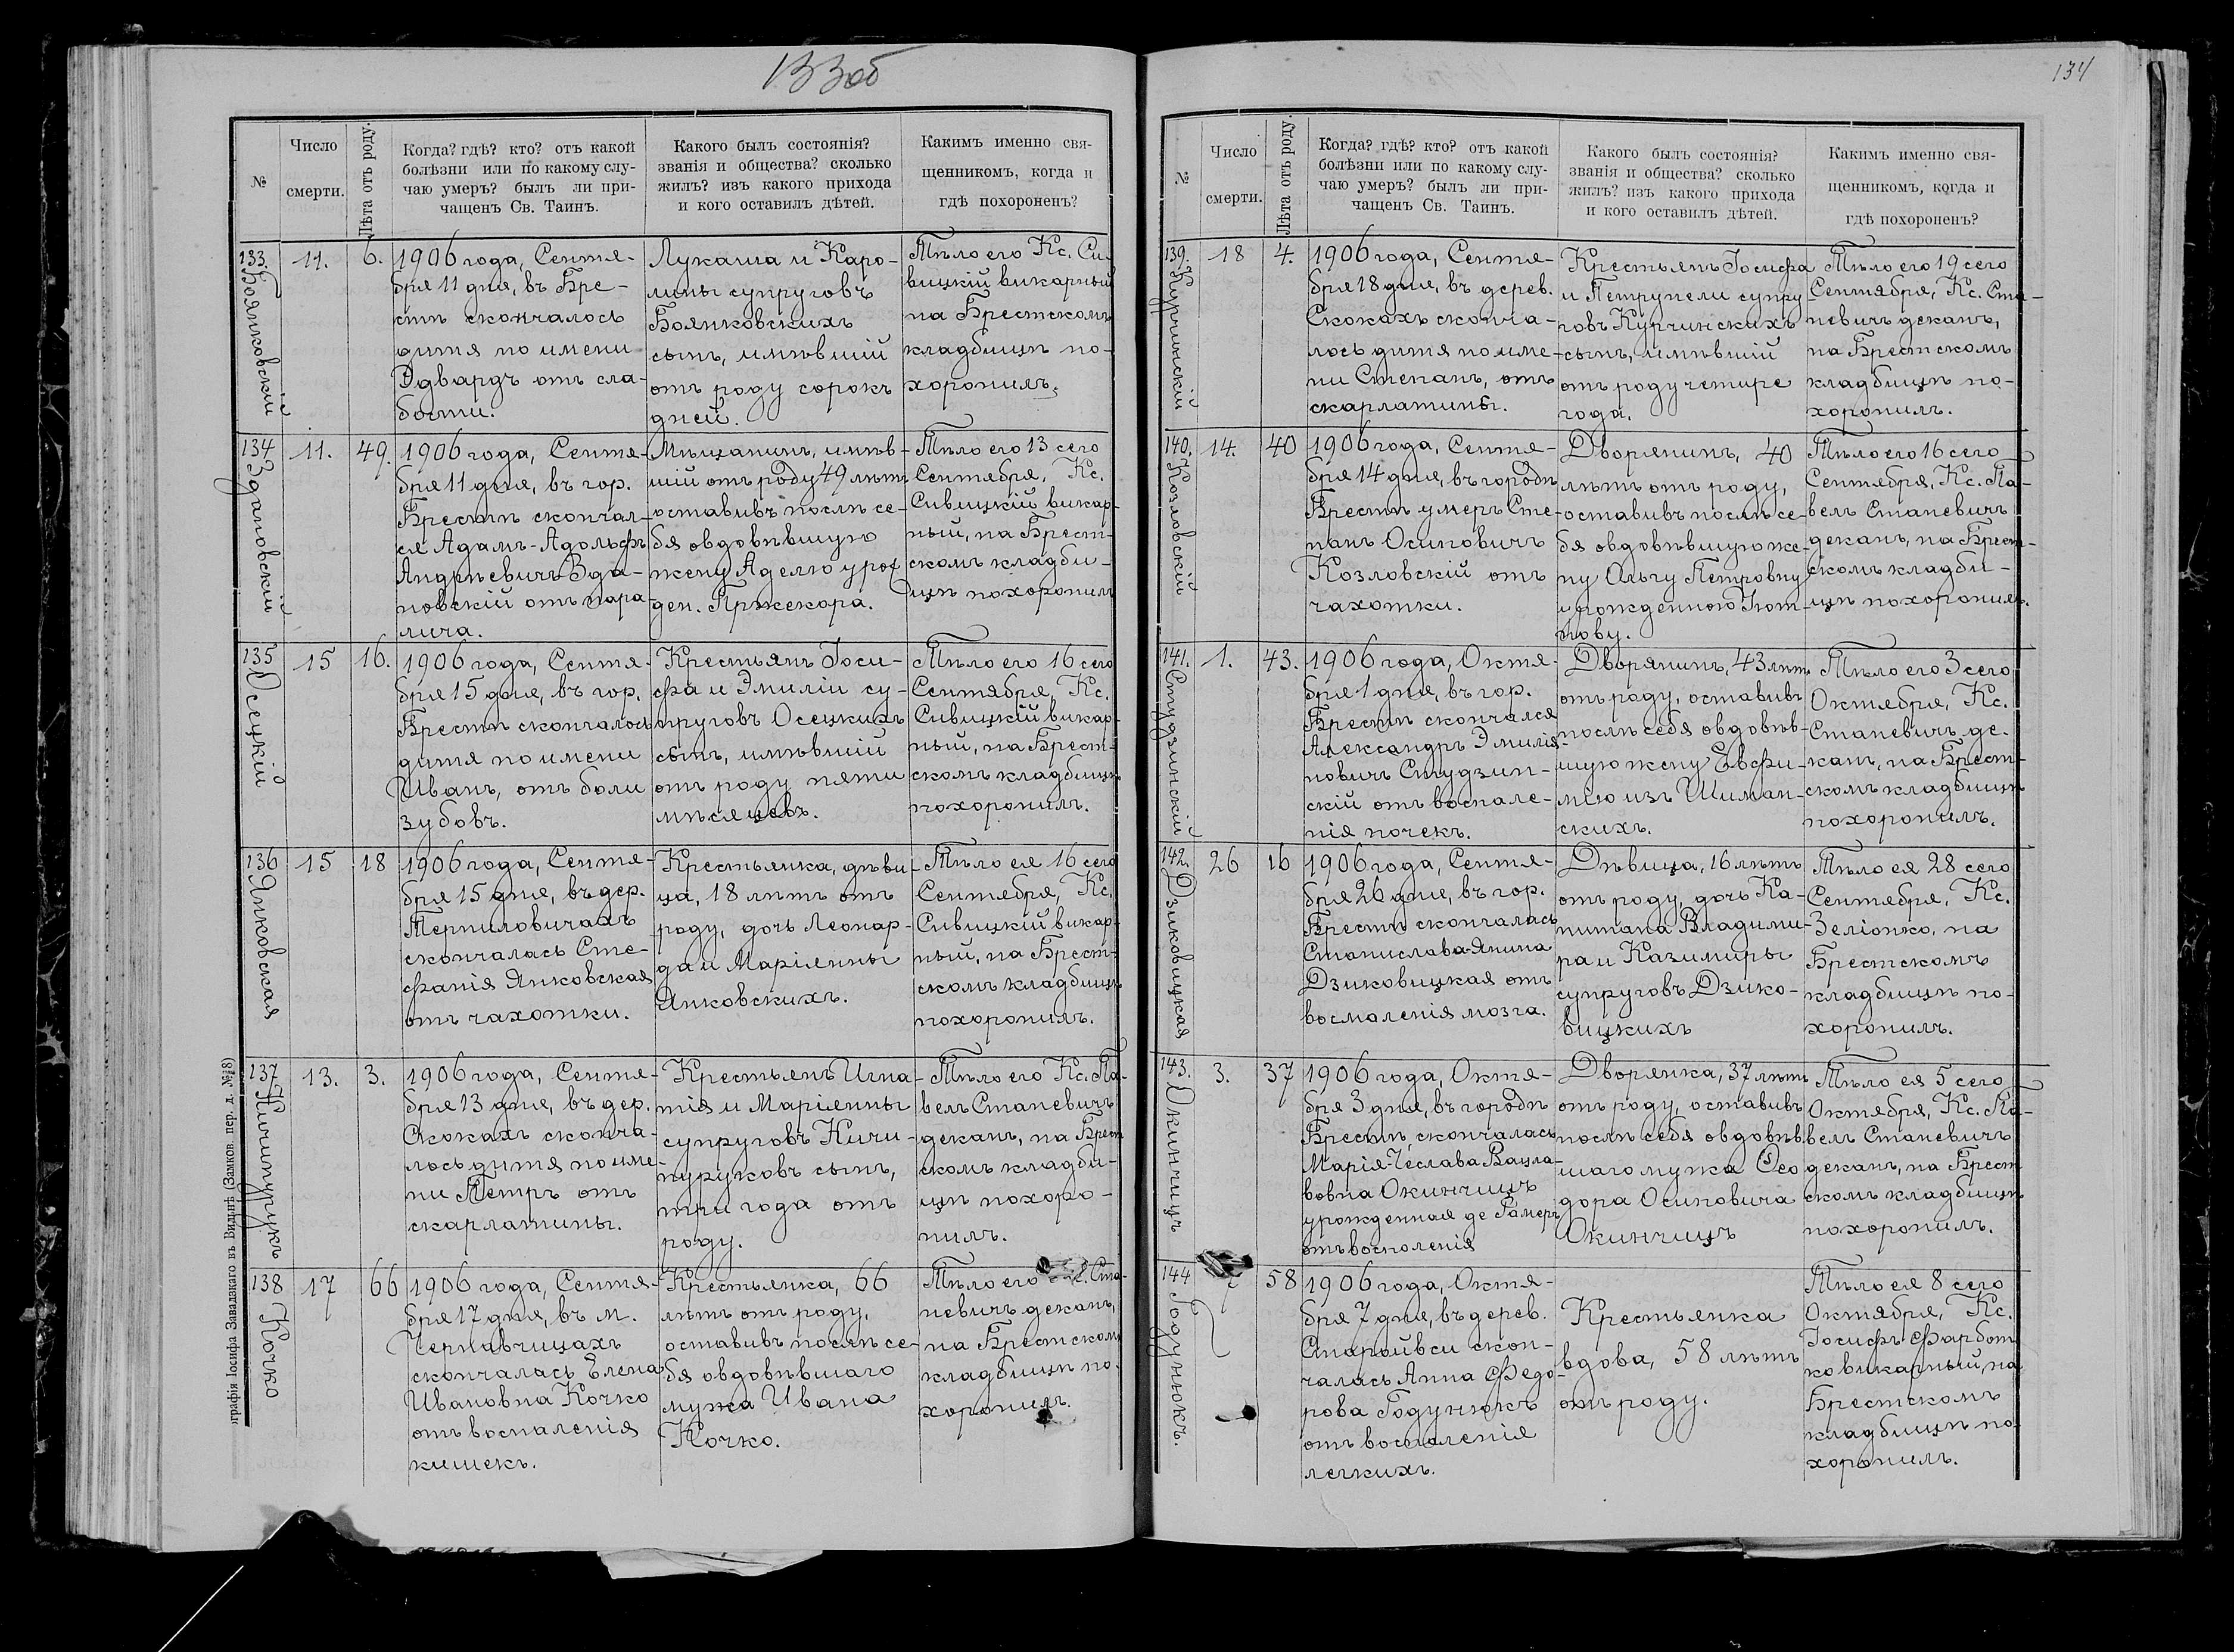 133об
№
Число
смерти.
Лѣта отъ роду.
Когда? гдѣ? кто? отъ какой
болѣзни или по какому слу-
чаю умеръ? былъ ли при-
чащенъ Св. Таинъ.
Какого былъ состоянія?
званія и общества? сколько
жилъ? изъ какого прихода
и кого оставилъ дѣтей.
Какимъ именно свя-
щенникомъ, когда и
гдѣ похороненъ?
133.
Боянковскій
11.
6.
1906 года, Сентя-
бря 11 дня, въ Бре-
стѣ скончалось
дитя по имени
Эдвардъ отъ сла-
бости.
Лукаша и Каро-
лины супруговъ
Боянковскихъ
сынъ, имѣвшій
отъ роду сорокъ
дней.
Тѣло его Кс. Си-
вицкій викарный
на Брестскомъ
кладбищѣ по-
хоронилъ.
134
Здановскій
11.
49.
1906 года, Сентя-
бря 11 дня, въ гор.
Брестѣ скончал-
ся Адамъ-Адольфъ
Андреевичъ Зда-
новскій отъ пара-
лича.
Мѣщанинъ, имѣв-
шій отъ роду 49 лѣтъ
оставивъ послѣ се-
бя овдовѣвшую
жену Аделю урож
ден. Пржекора.
Тѣло его 13 сего
Сентября, Кс.
Сивицкій викар-
ный, на Брест-
скомъ кладби-
щѣ похоронилъ
135
Осецкій
15
16.
1906 года, Сентя-
бря 15 дня, въ гор.
Брестѣ скончалось
дитя по имени
Иванъ, отъ боли
зубовъ.
Крестьянъ Іоси-
фа и Эмиліи су-
пруговъ Осецкихъ
сынъ, имѣвшій
отъ роду пяти
мѣсяцевъ.
Тѣло его 16 сего
Сентября, Кс.
Сивицкій викар-
ный, на Брест-
скомъ кладбищѣ
похоронилъ.
136
Янковская
15
18
1906 года, Сентя-
бря 15 дня, въ дер.
Терпиловичахъ
скончалась Сте-
фанія Янковская
отъ чахотки.
Крестьянка, дѣви-
ца, 18 лѣтъ отъ
роду, дочь Леонар-
да и Маріянны
Янковскихъ.
Тѣло ея 16 сего
Сентября, Кс.
Сивицкій викар-
ный, на Брест-
скомъ кладбищѣ
похоронилъ.
137
Ничипурукъ
13.
3.
1906 года, Сентя-
бря 13 дня, въ дер.
Скокахъ сконча-
лось дитя по име-
ни Петръ отъ
скарлатины.
Крестьянъ Игна-
тія и Маріянны
супруговъ Ничи-
пуруковъ сынъ,
три года отъ
роду.
Тѣло его Кс. Па-
велъ Станевичъ
деканъ, на Брест
скомъ кладби-
щѣ похоро-
нилъ.
138
Кочко
17
66
1906 года, Сентя-
бря 17 дня, въ м.
Чернавчицахъ
скончалась Елена
Ивановна Кочко
отъ воспаленія
кишекъ.
Крестьянка, 66
лѣтъ отъ роду,
оставивъ послѣ се-
бя овдовѣвшаго
мужа Ивана
Кочко.
Тѣло его Ста-
невичъ деканъ,
на Брестскомъ
кладбищѣ по-
хоронилъ.
Иосифа Завадзкаго въ Вильнѣ (Замков. пер. д. № 8)
134
№
Число
смерти.
Лѣта отъ роду.
Когда? гдѣ? кто? отъ какой
болѣзни или по какому слу-
чаю умеръ? былъ ли при-
чащенъ Св. Таинъ.
Какого былъ состоянія?
званія и общества? сколько
жилъ? изъ какого прихода
и кого оставилъ дѣтей.
Какимъ именно свя-
щенникомъ, когда и
гдѣ похороненъ?
139.
Курчинскій
18
4.
1906 года, Сентя-
бря 18 дня, въ дерев.
Скокахъ сконча-
лось дитя по име-
ни Степанъ, отъ
скарлатины.
Крестьянъ Іосифа
и Петрунели супру
говъ Курчинскихъ
сынъ, имѣвшій
отъ роду четире
года.
Тѣло его 19 сего
Сентября, Кс. Ста-
невичъ деканъ,
на Брестскомъ
кладбищѣ по-
хоронилъ.
140.
Козловскій
14.
40
1906 года, Сентя-
бря 14 дня, въ городѣ
Брестѣ умеръ Сте-
панъ Осиповичъ
Козловскій отъ
чахотки.
Дворянинъ, 40
лѣтъ отъ роду,
оставивъ послѣ се-
бя овдовѣвшую же-
ну Ольгу Петровну
урожденною Тют-
тову.
Тѣло его 16 сего
Сентября, Кс. Па-
велъ Станевичъ
деканъ, на Брест-
скомъ кладби-
щѣ похоронилъ.
141.
Студзинскій
1.
43.
1906 года, Октя-
бря 1 дня, въ гор.
Брестѣ скончался
Александръ Эмилія-
новичъ Студзин-
скій отъ воспале-
нія почекъ.
Дворянинъ, 43 лѣтъ
отъ роду, оставивъ
послѣ себя овдовѣв-
шую жену Евфи-
мію изъ Шиман-
скихъ.
Тѣло его 3 сего
Октября, Кс.
Станевичъ де-
канъ, на Брест-
скомъ кладбищѣ
похоронилъ.
142.
Дзиковицкая
26
16
1906 года, Сентя-
бря 26 дня, въ гор.
Брестѣ скончалась
Станислава-Янина
Дзиковицкая отъ
восполенія мозга.
Дѣвица, 16 лѣтъ
отъ роду, дочь Ка-
питана Владими-
ра и Казимиры
супруговъ Дзико-
вицкихъ
Тѣло ея 28 сего
Сентября, Кс.
Зеліонко, на
Брестскомъ
кладбищѣ по-
хоронилъ.
143.
Окинчицъ
3.
37
1906 года, Октя-
бря 3 дня, въ городѣ
Брестѣ, скончалась
Марія-Чеслава Вацла-
вовна Окинчицъ
урожденная де Рамеръ
отъ восполенія
Дворянка, 37 лѣтъ
отъ роду, оставивъ
послѣ себя овдовѣв
шаго мужа Ѳео
дора Осиповича
Окинчицъ
Тѣло ея 5 сего
Октября, Кс. Па-
велъ Станевичъ
деканъ, на Брест
скомъ кладбищѣ
похоронилъ.
144
Годунюкъ.
7
58
1906 года, Октя-
бря 7 дня, въ дерев.
Старойвси скон-
чалась Анна Федо-
рова Годунюкъ
отъ воспаленія
легкихъ.
Крестьянка
вдова, 58 лѣтъ
отъ роду.
Тѣло ея 8 сего
Октября, Кс.
Іосифъ Фарбот
ко викарный, на
Брестскомъ
кладбищѣ по-
хоронилъ.